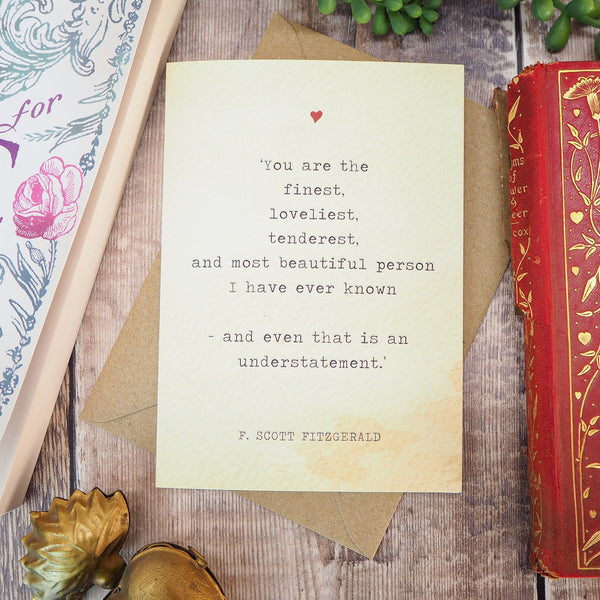 for
'You are the
finest,
loveliest,
tenderest,
and most beautiful person
I have ever known
- and even that is an
understatement.'
F. SCOTT FITZGERALD
of
&